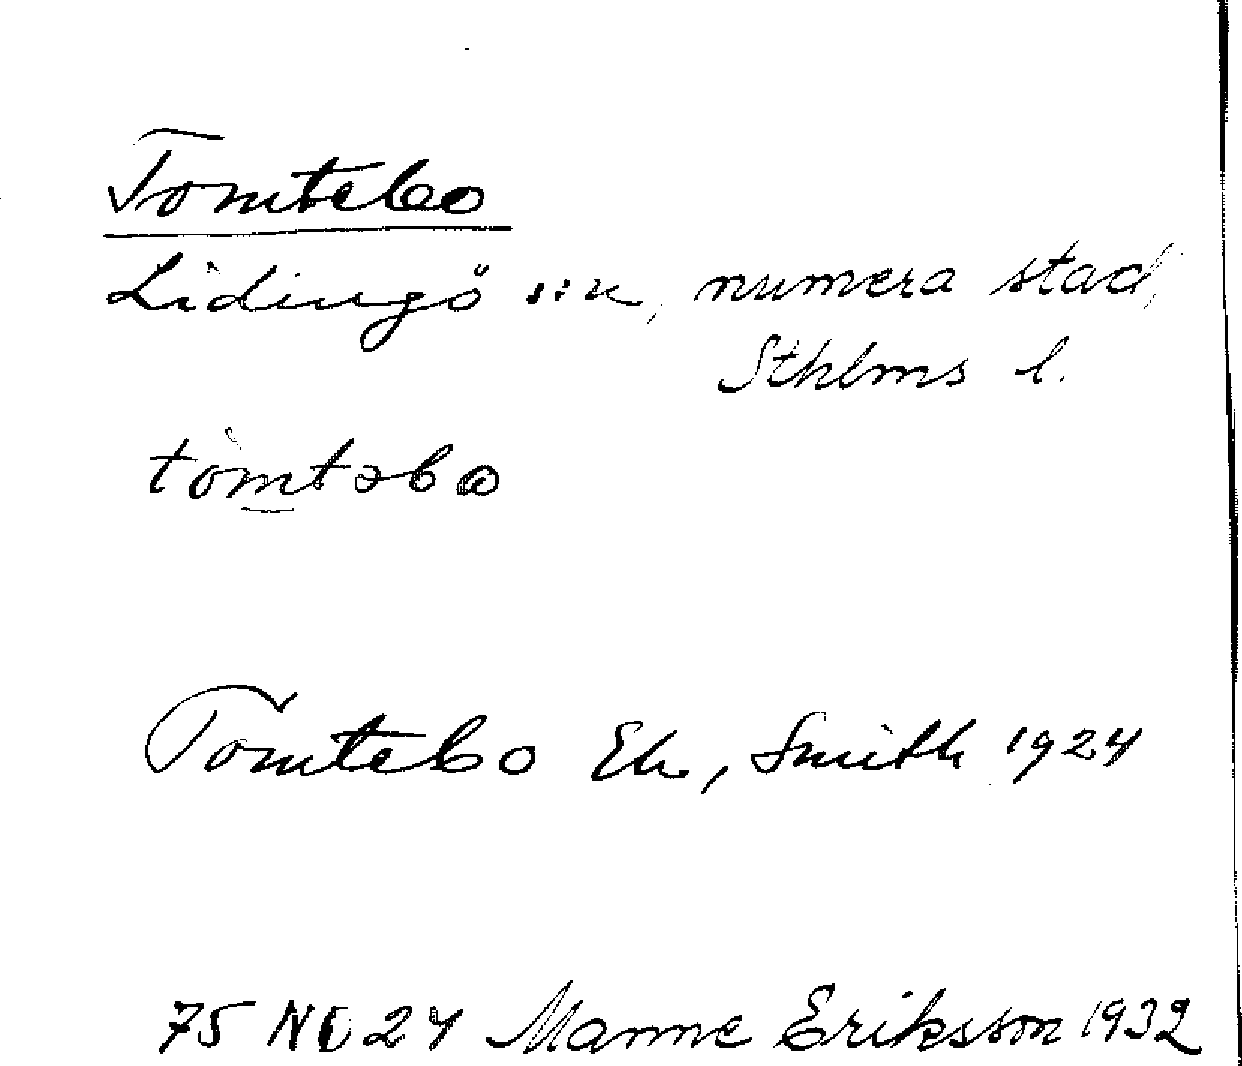 Tomtebo
Lidingö s:n, numera stad,
Sthlms l.
tòmtəbo
Tomtebo Ek, Smith 1924
75 NO 24 Manne Eriksson 1932